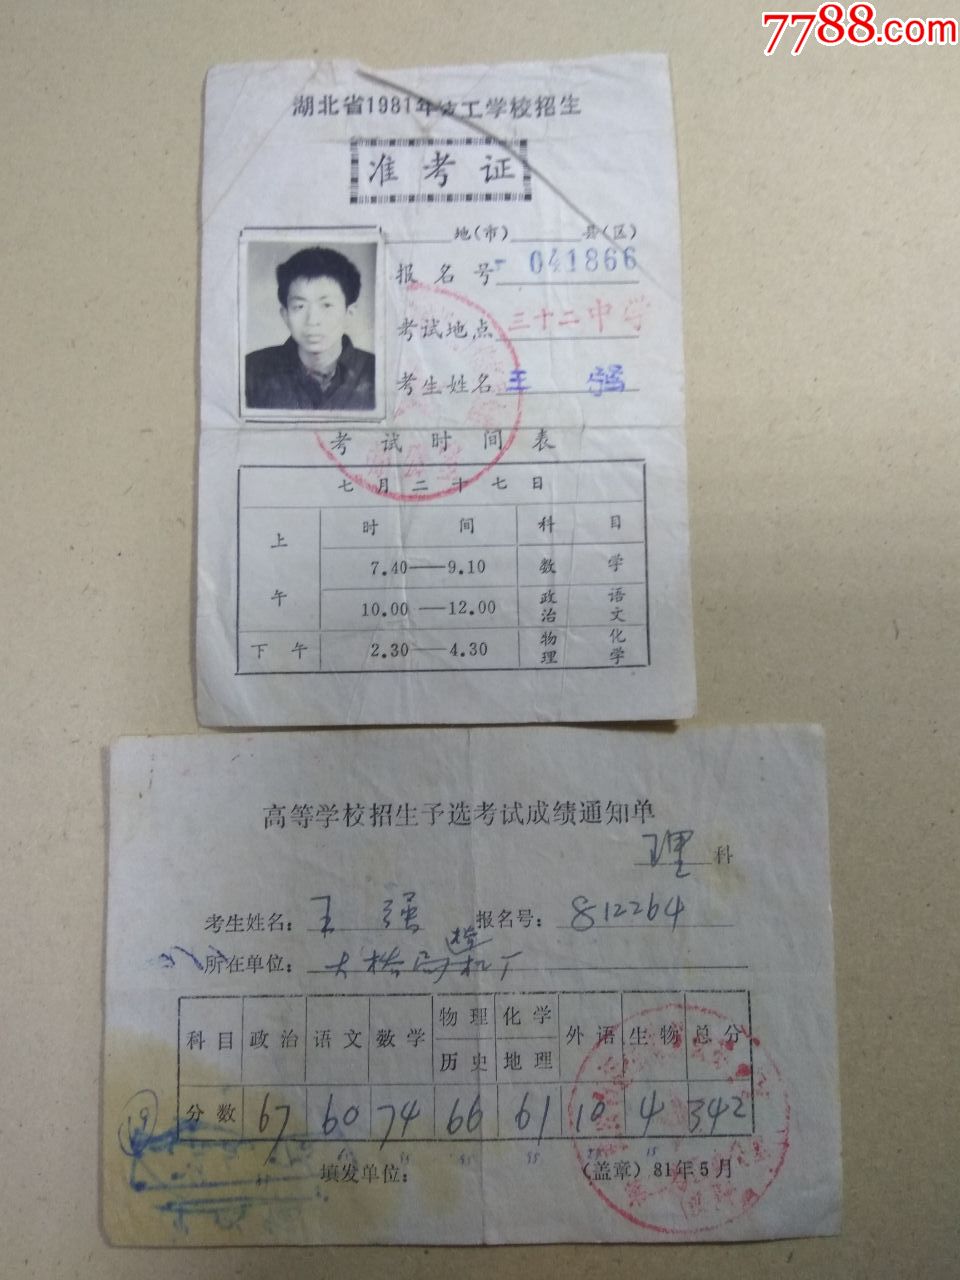 7788.com
湖北省1981年技工学校招生
准考证
地(市) 县(区)
报名号 041866
考试地点 三十二中学
考生姓名 王 强
考试时间表
七月二十七日
上午 时间 科目
7.40——9.10 数学
10.00——12.00 政治 语文
下午 2.30——4.30 物理 化学
高等学校招生予选考试成绩通知单
理 科
考生姓名: 王 强 报名号: 812264
所在单位: 大桥局 机厂
科目 政治 语文 数学 物理 化学 外语 生物 总分
历史 地理
分数 67 60 74 66 61 10 4 342
填发单位: (盖章) 81年5月